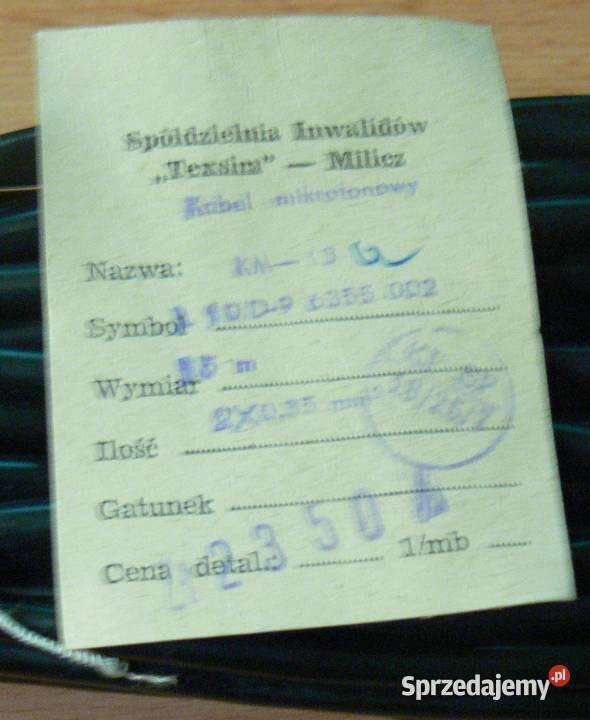 Spółdzielnia Inwalidów
„Texsim" — Milicz
Kabel mikrofonowy
Nazwa: KM—13
Symbol 10/D-9 6355 002
Wymiar 15 m
Ilość 2X0,35 mm²
Gatunek
Cena detal.: 1/mb
42350
Sprzedajemy.pl